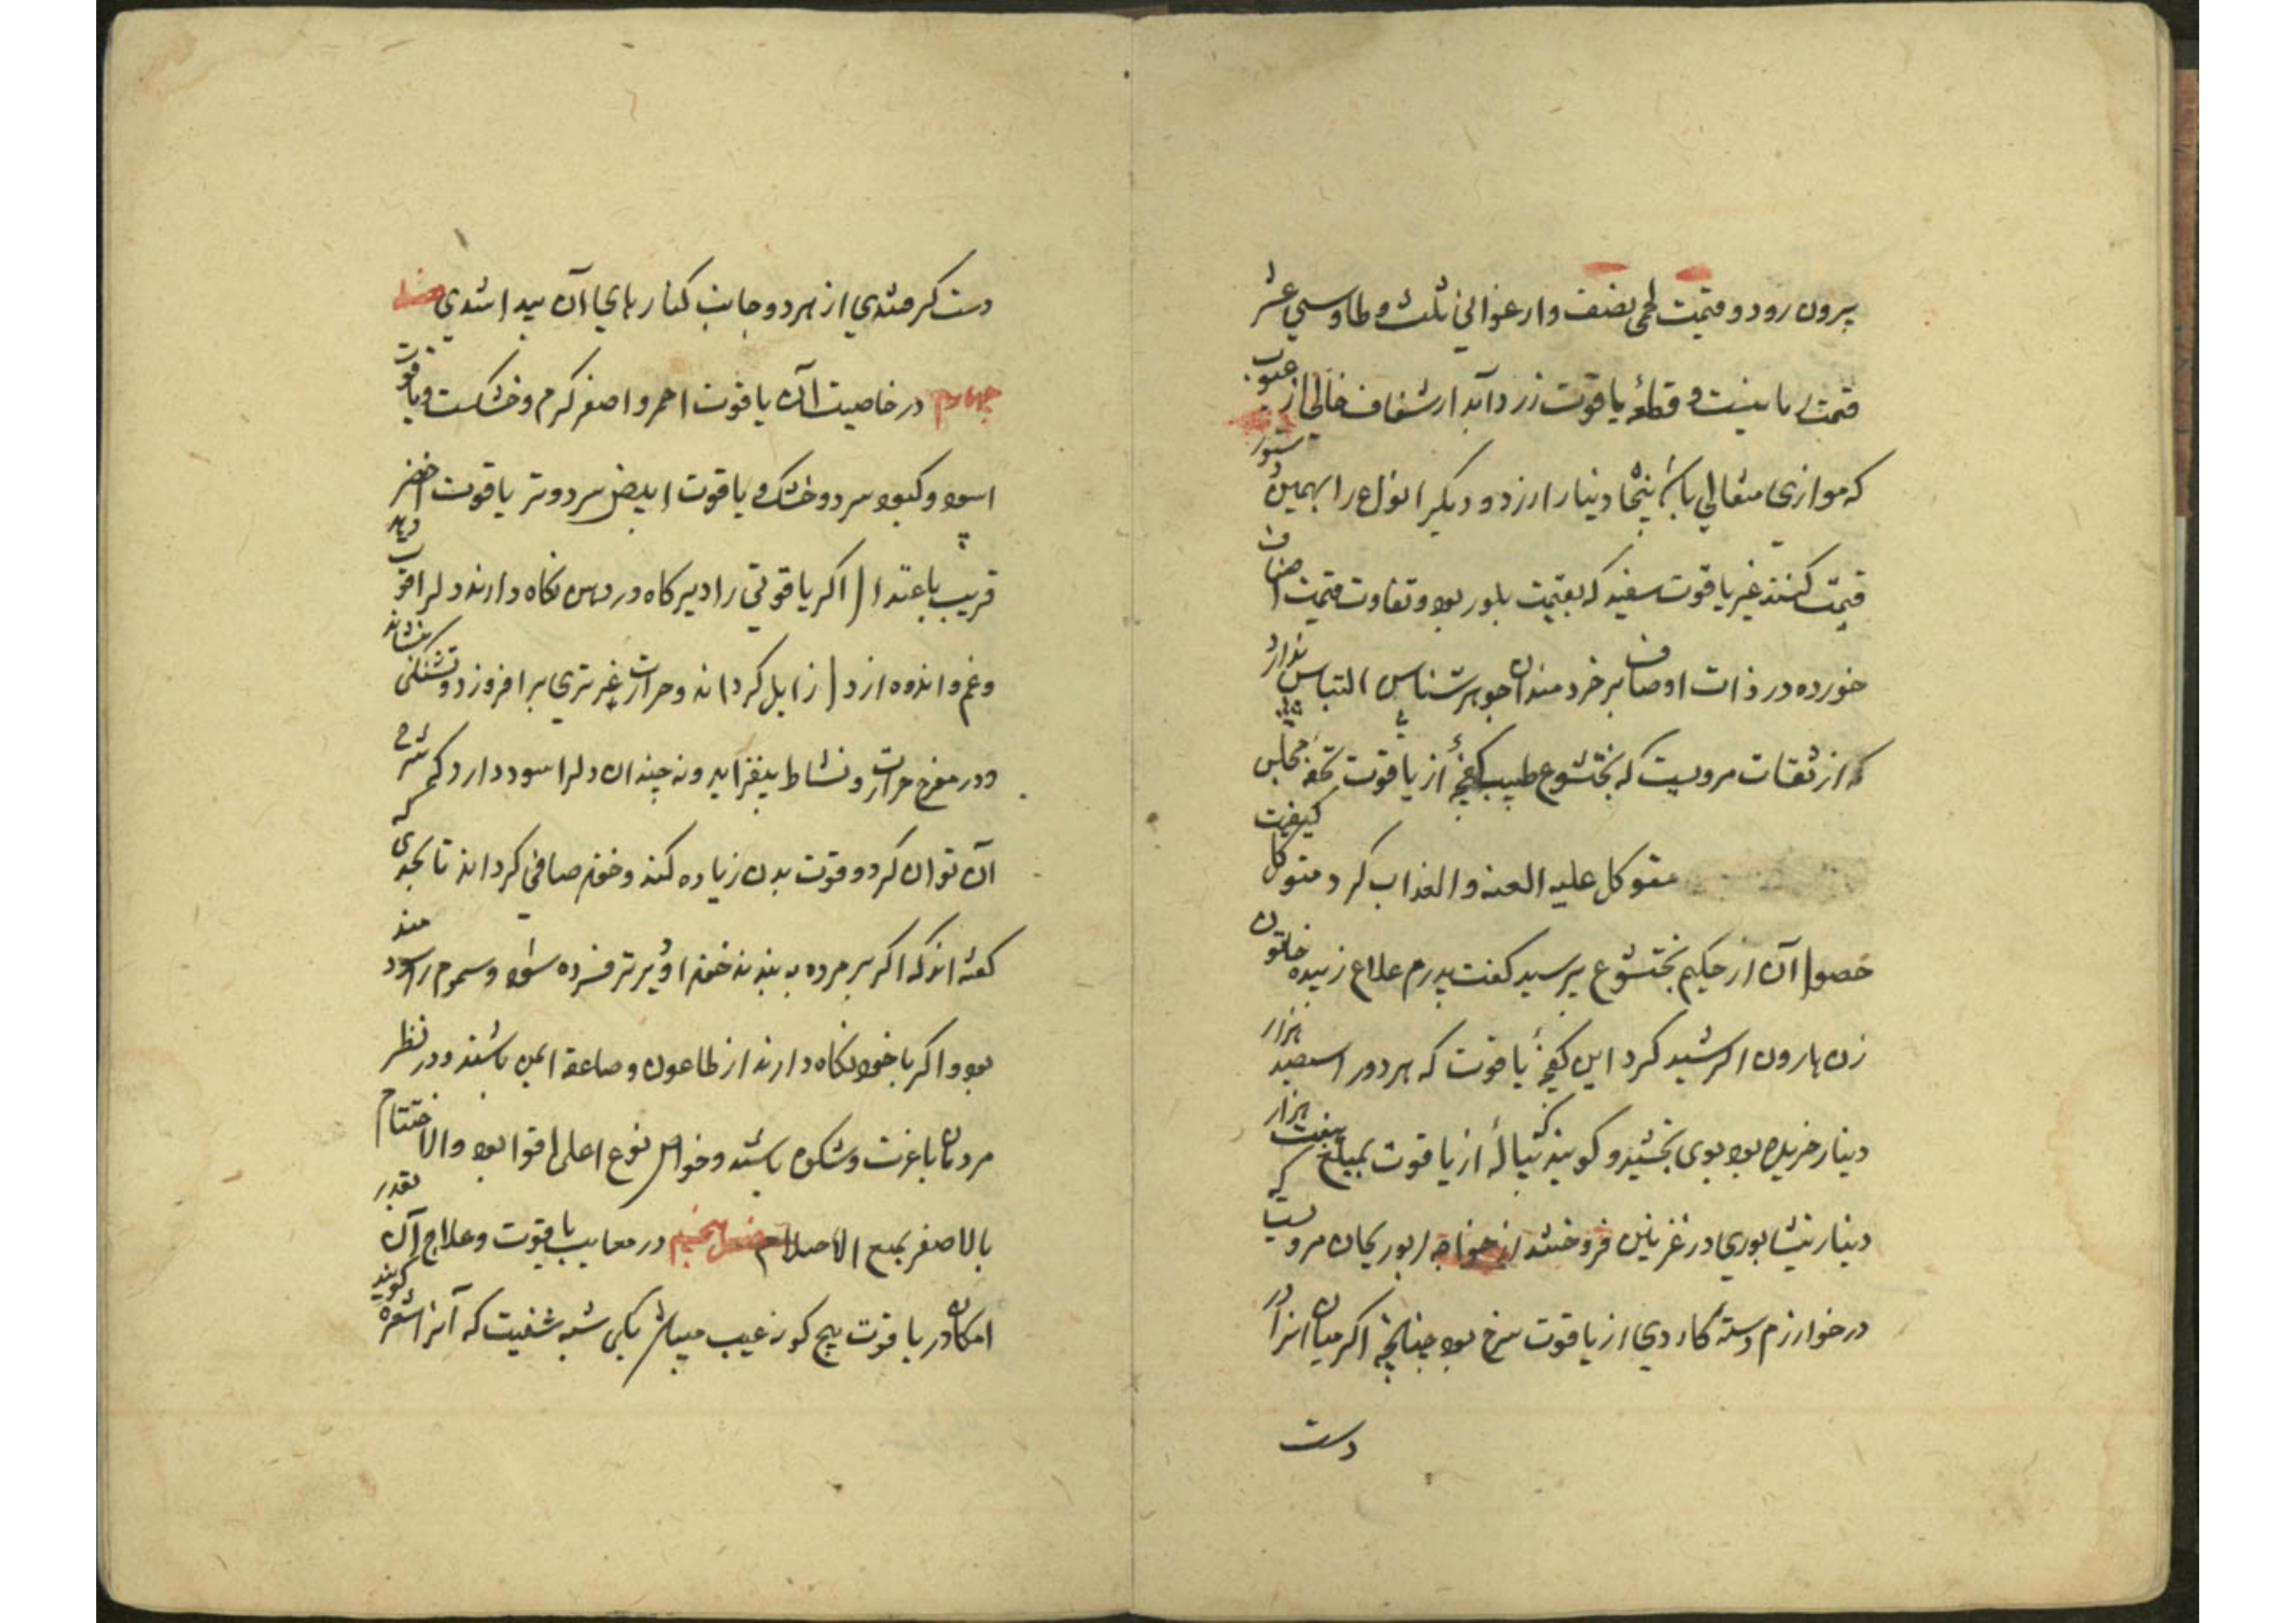 بیرون رود و قیمت لحمی بنصف و ارغوانی ثلث و طاوسی عشر
قیمت رمانیست و قطعهٔ یاقوت زرد آبدار شفاف خالی از عیوب
که موازی مثقالی باشد پنجاه دینار ارزد و دیگر انواع را بهمین دستور
قیمت کنند غیر یاقوت سفید که بقیمت بلور بود و تفاوت قیمت اصناف
خورده در ذات اوصاف بر خردمندان جوهرشناس التباس ندارد
که از ثقات مرویست که بختشوع طبیب کفچهٔ از یاقوت تحفه مجلس
متوکل علیه العنه و العذاب کرد متوکل کیفیت
حصول آن از حکیم بختشوع پرسید کفت پدرم علاج زبیده خاتون
زن هارون الرشید کرد این کفچهٔ یاقوت که هر دو را سیصد هزار
دینار خریده بود بوی بخشید و کویند که پیالهٔ از یاقوت بمبلغ هفت هزار
دینار نیشابوری در غزنین فروختند از خواجه ابوریحان مرویست که
در خوارزم دسته کاردی از یاقوت سرخ بود چنانچه اکر میان انرا در
دست
دست کرفتندی از هر دو جانب کنارهای آن پیدا شدی فصل
چهارم در خاصیت آن یاقوت احمر و اصفر کرم و خشکست و یاقوت
اسود و کبود سرد و خشک و یاقوت ابیض سرد و تر یاقوت اخضر
قریب باعتدال اکر یاقوتی را دیرکاه در دهن نکاه دارند دلرا قوت دهد
و غم و اندوه از دل زایل کرداند و حرارت غریزی برافروزد و تشنکی بنشاند
و در مفرح حرارت و نشاط بیفزاید و نه چندان دلرا سود دارد که شرح
آن توان کرد و قوت بدن زیاده کند و خون صافی کرداند تا بحدی که
کفته اند که اکر بر مرده به بندند خون او دیرتر فسرده شود و سموم را سودمند
بود و اکر با خود نکاه دارند از طاعون و صاعقه ایمن باشند و در نظر
مردمان با عزت و شکوه باشد و خواص نوع اعلی اقوا بود و الاختتام
بالاصفر بجمیع الاصلاح فصل پنجم در معایب یاقوت و علاج آن بقدر
امکان در یاقوت پنج کونه عیب میباشد یکی شبه شفیت که آنرا شعره کویند